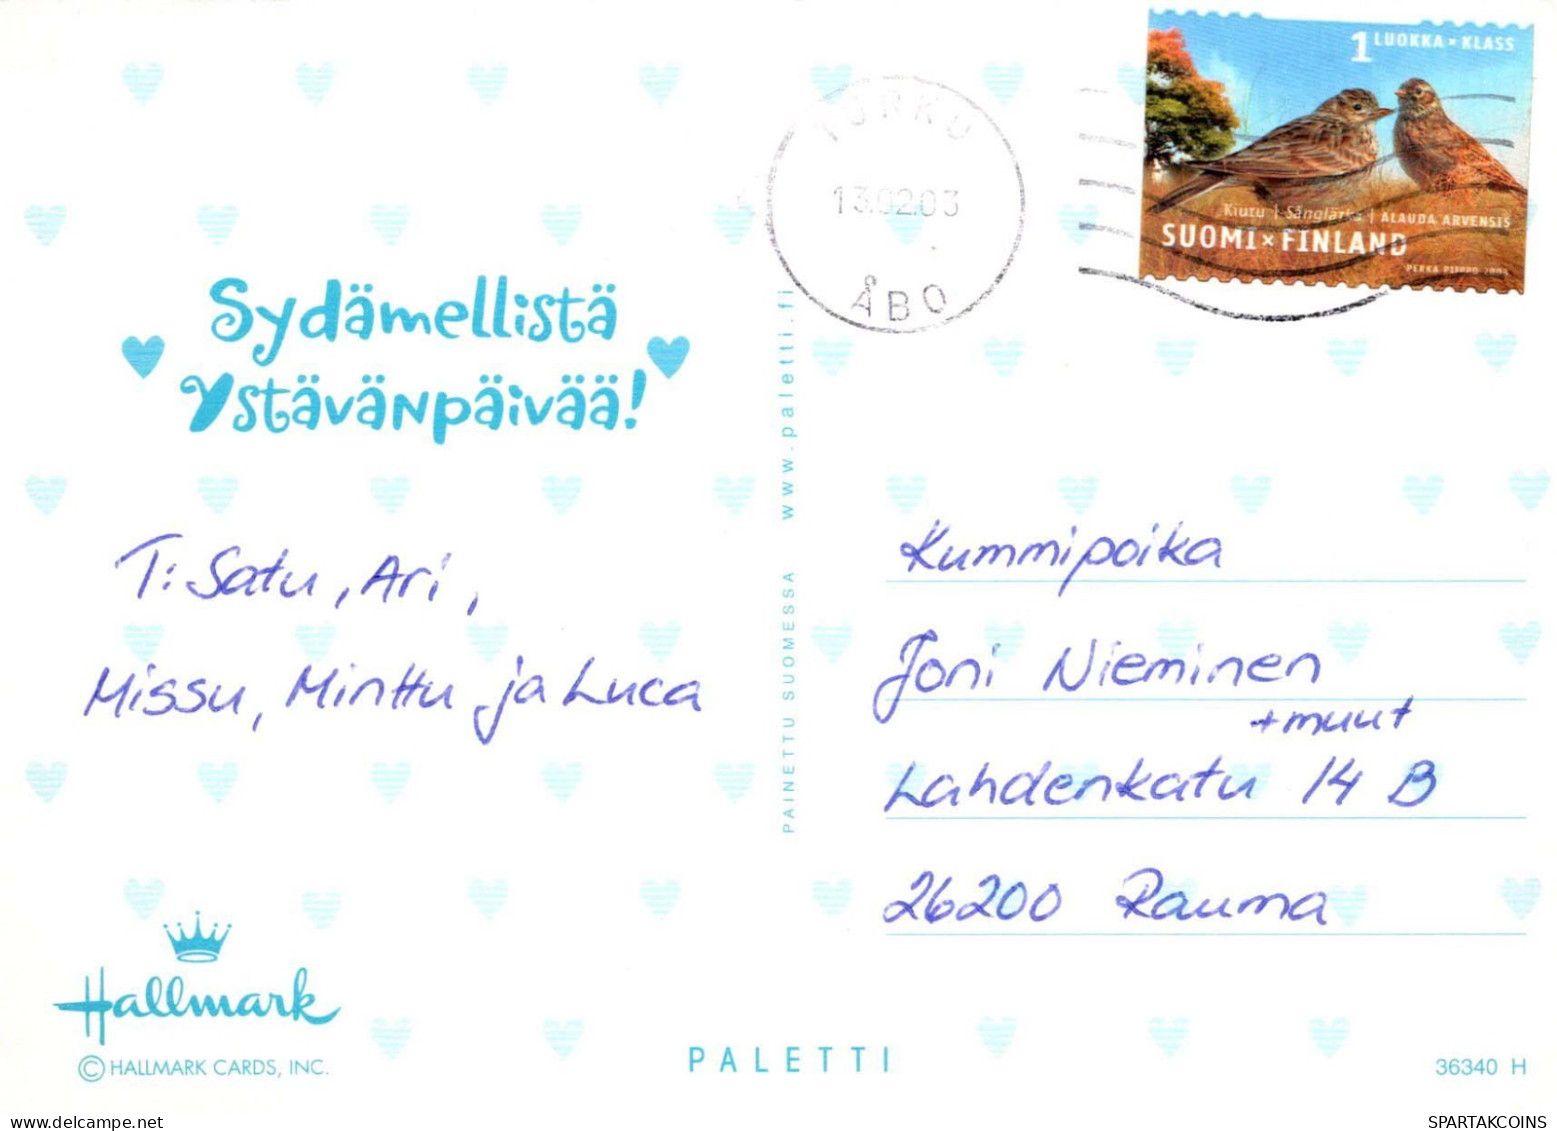 1 LUOKKA × KLASS
Kiutu | Sånglärka | ALAUDA ARVENSIS
SUOMI × FINLAND
PEKKA PIIPPO 2003
TURKU
13.02.03
ÅBO
Sydämellistä
Ystävänpäivää!
T: Satu, Ari,
Missu, Minttu ja Luca
www.paletti.fi
PAINETTU SUOMESSA
Kummipoika
Joni Nieminen
+ muut
Lahdenkatu 14 B
26200 Rauma
Hallmark
© HALLMARK CARDS, INC.
PALETTI
36340 H
SPARTAKCOINS